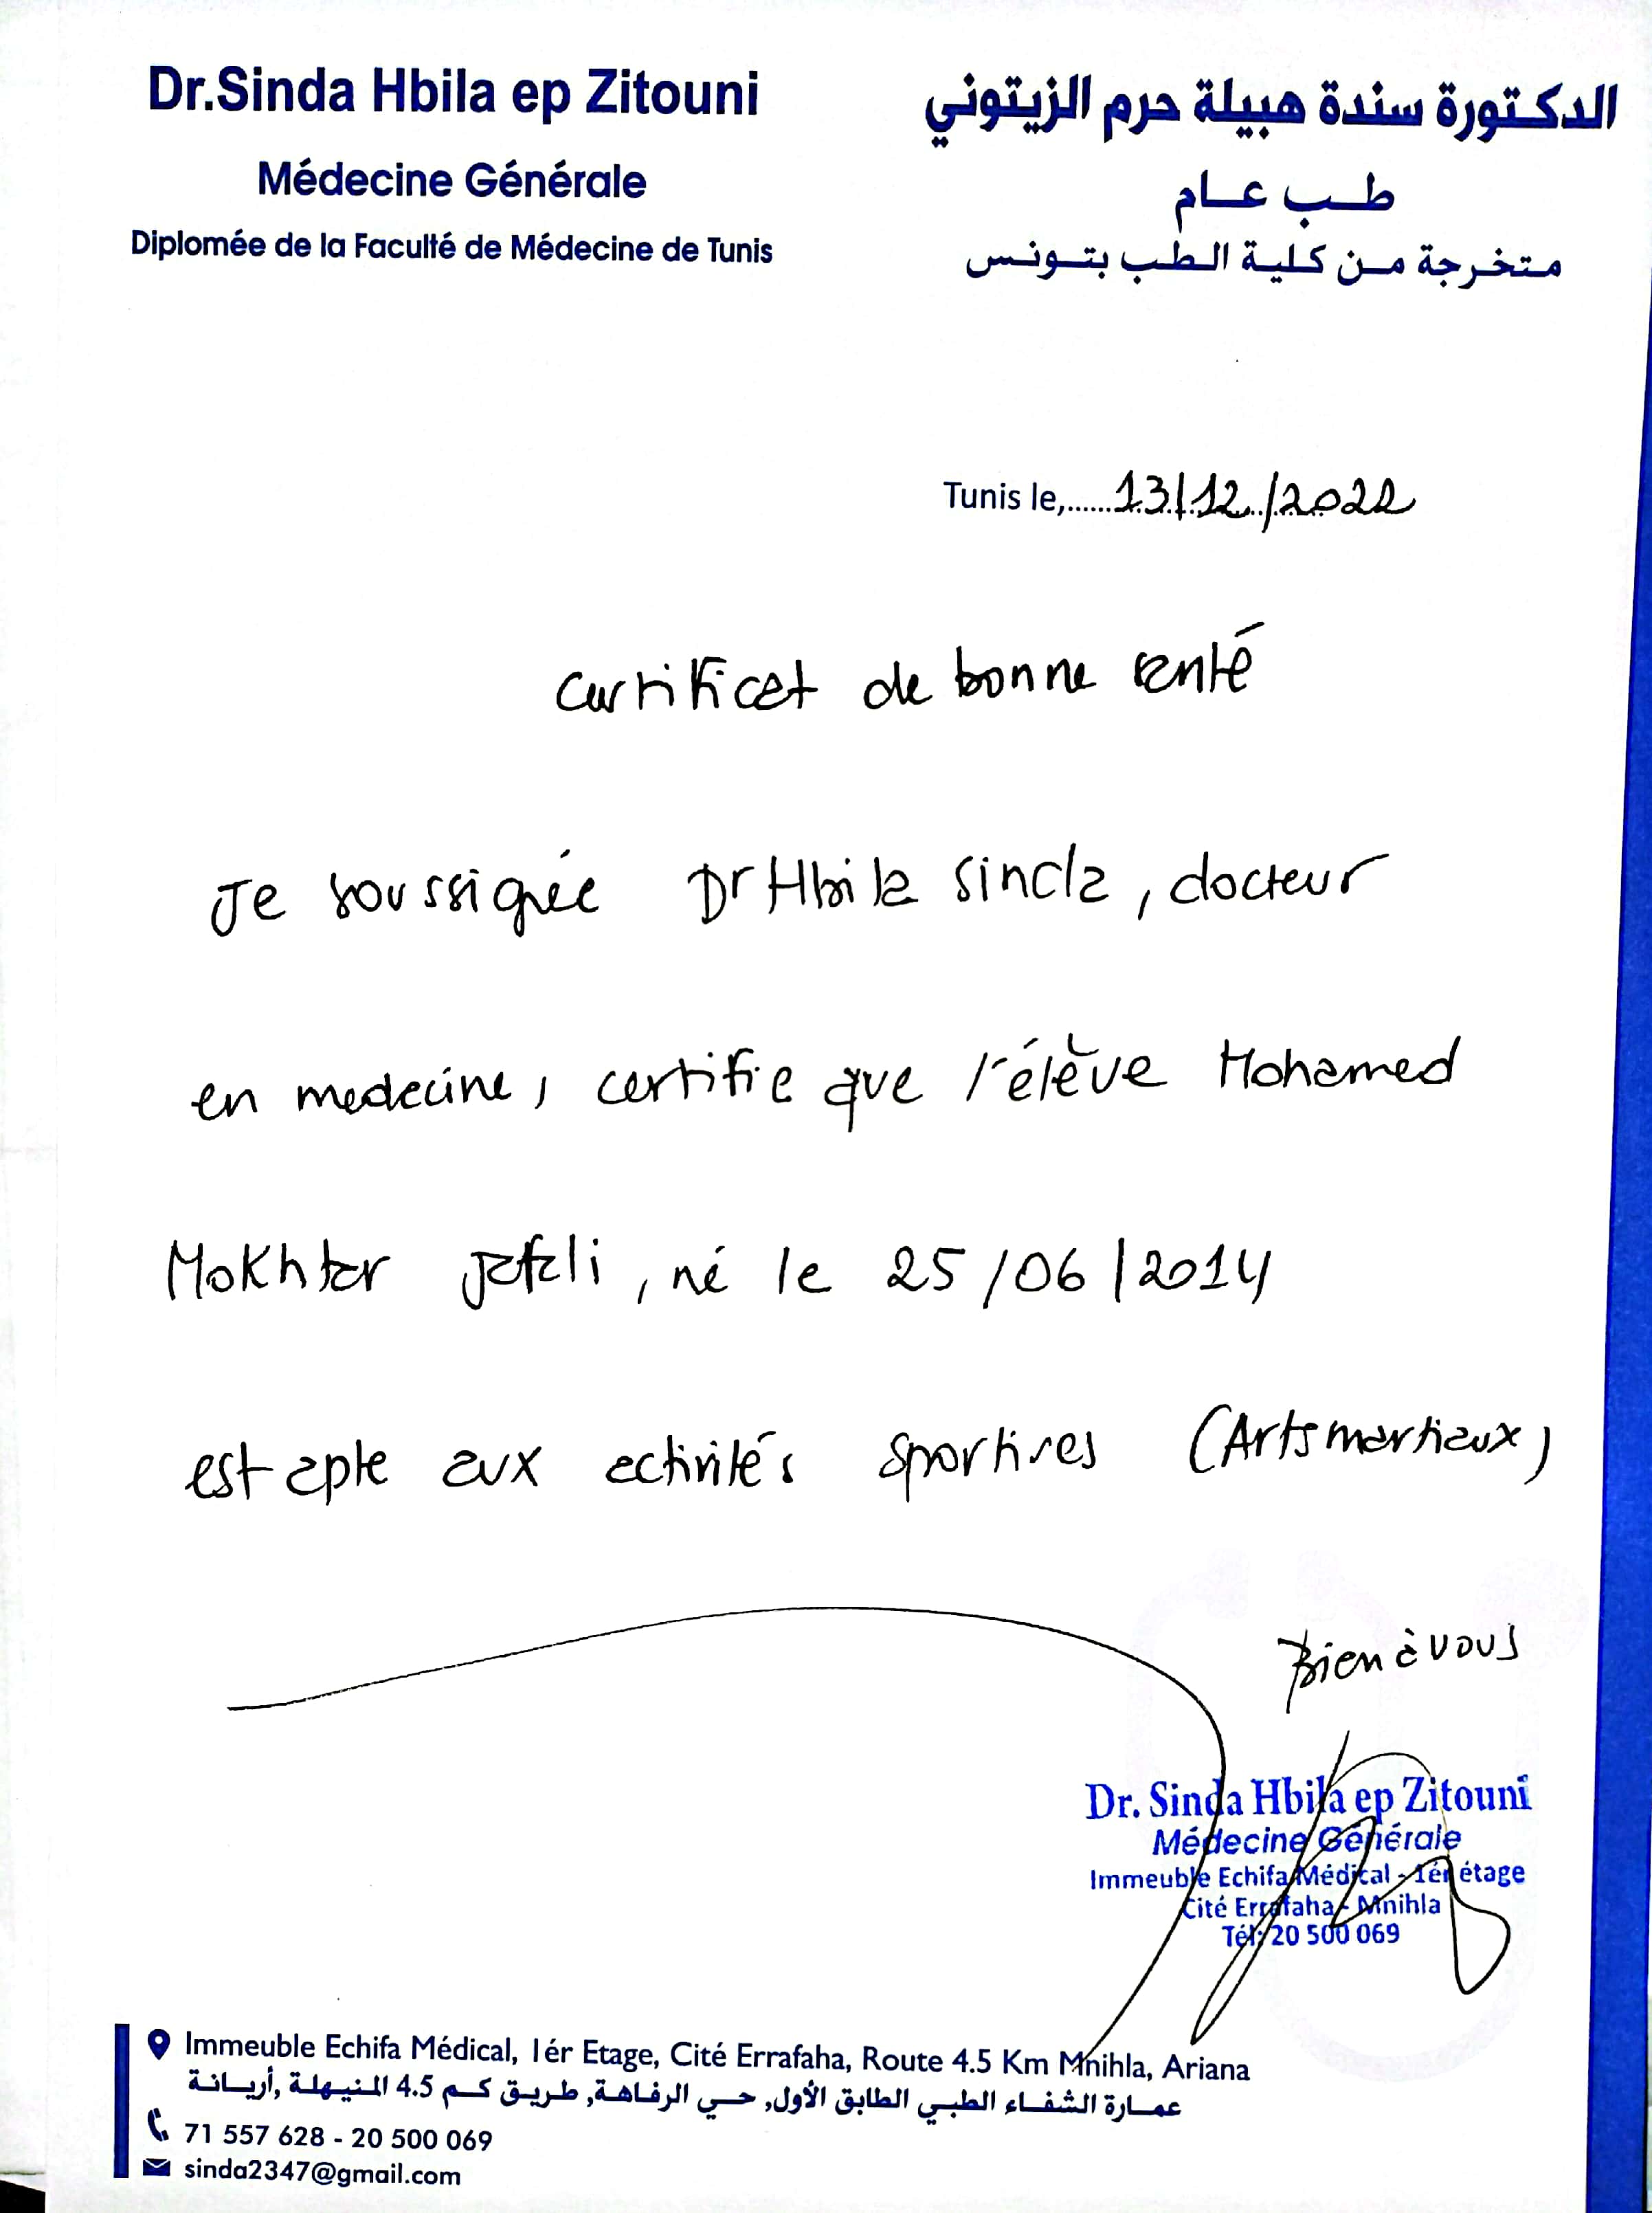 Dr.Sinda Hbila ep Zitouni
Médecine Générale
Diplomée de la Faculté de Médecine de Tunis
الدكتورة سندة هبيلة حرم الزيتوني
طب عام
متخرجة من كلية الطب بتونس
Tunis le,......13/12/2022
Certificat de bonne santé
Je soussignée Dr Hbila Sinda, docteur
en medecine, certifie que l'élève Mohamed
Mokhtar Jefali, né le 25/06/2014
est apte aux activités sportives (Arts martiaux)
Bien à vous
Dr. Sinda Hbila ep Zitouni
Médecine Générale
Immeuble Echifa Médical - 1ér étage
Cité Errafaha - Mnihla
Tél: 20 500 069
Immeuble Echifa Médical, 1ér Etage, Cité Errafaha, Route 4.5 Km Mnihla, Ariana
عمارة الشفاء الطبي الطابق الأول, حي الرفاهة, طريق كم 4.5 المنيهلة ,أريانة
71 557 628 - 20 500 069
sinda2347@gmail.com